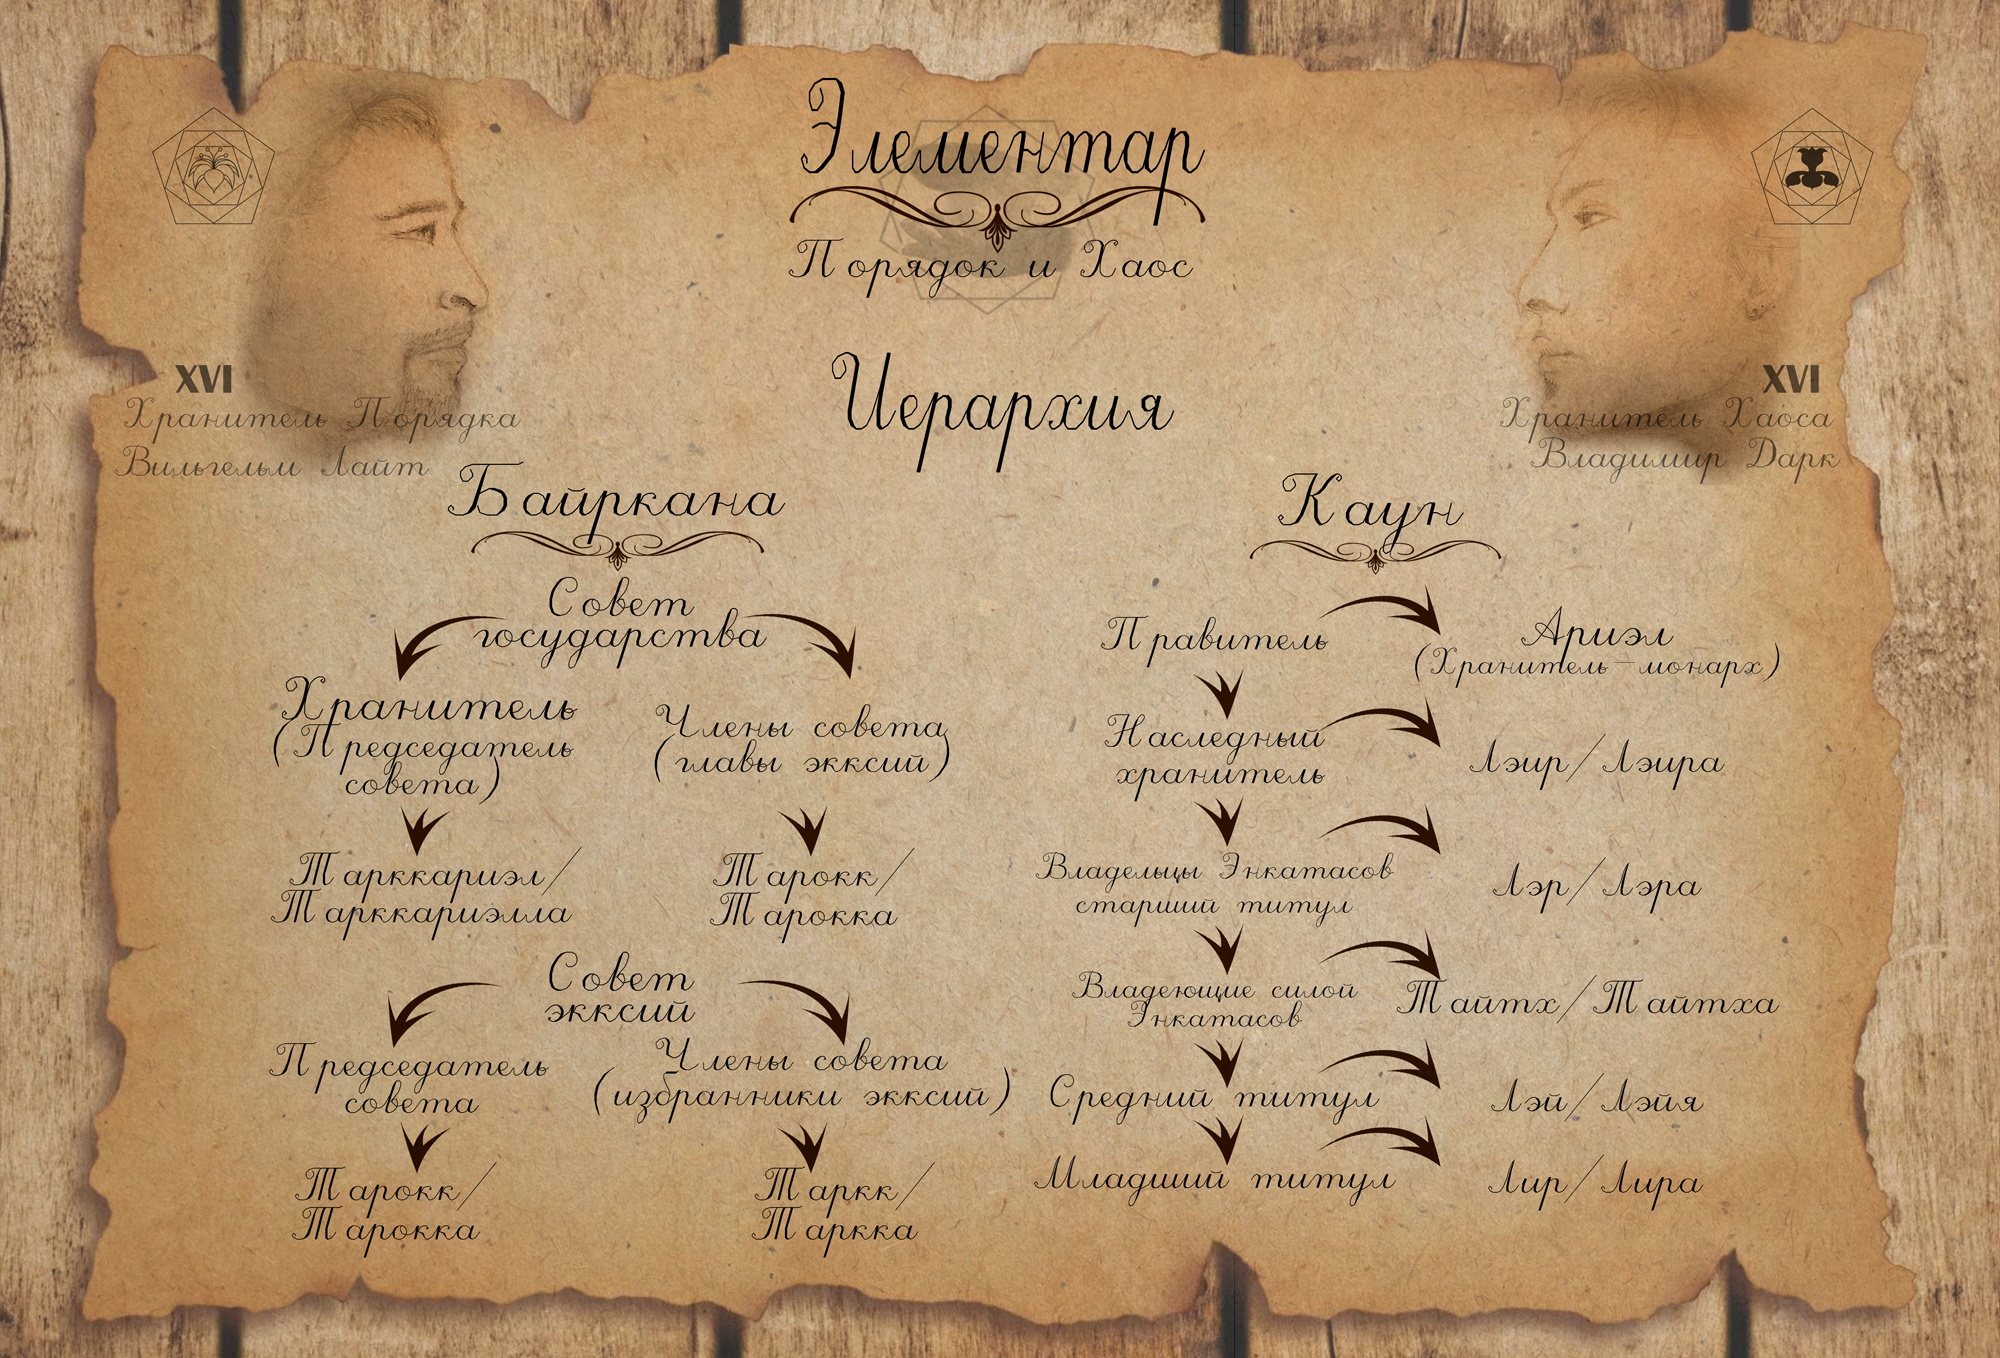 Элементар
Порядок и Хаос
Иерархия
XVI
Хранитель Порядка
Вильгельм Лайт
XVI
Хранитель Хаоса
Владимир Дарк
Байркана
Совет
государства
Хранитель
(Председатель
совета)
Члены совета
(главы экксий)
Тарккариэл/
Тарккариэлла
Тарокк/
Тарокка
Совет
экксий
Председатель
совета
Члены совета
(избранники экксий)
Тарокк/
Тарокка
Таркк/
Таркка
Каун
Правитель
Ариэл
(Хранитель-монарх)
Наследный
хранитель
Лэир/Лэира
Владельцы Энкатасов
старший титул
Лэр/Лэра
Владеющие силой
Энкатасов
Тайтх/Тайтха
Средний титул
Лэй/Лэйя
Младший титул
Лир/Лира